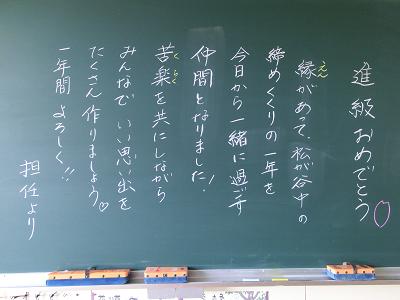 進級おめでとう
縁があって、松が谷中の
えん
締めくくりの一年を
今日から一緒に過ごす
仲間となりました!
苦楽を共にしながら
くらく
みんなで いい思い出を
たくさん作りましょう♡
一年間 よろしく!!
担任より